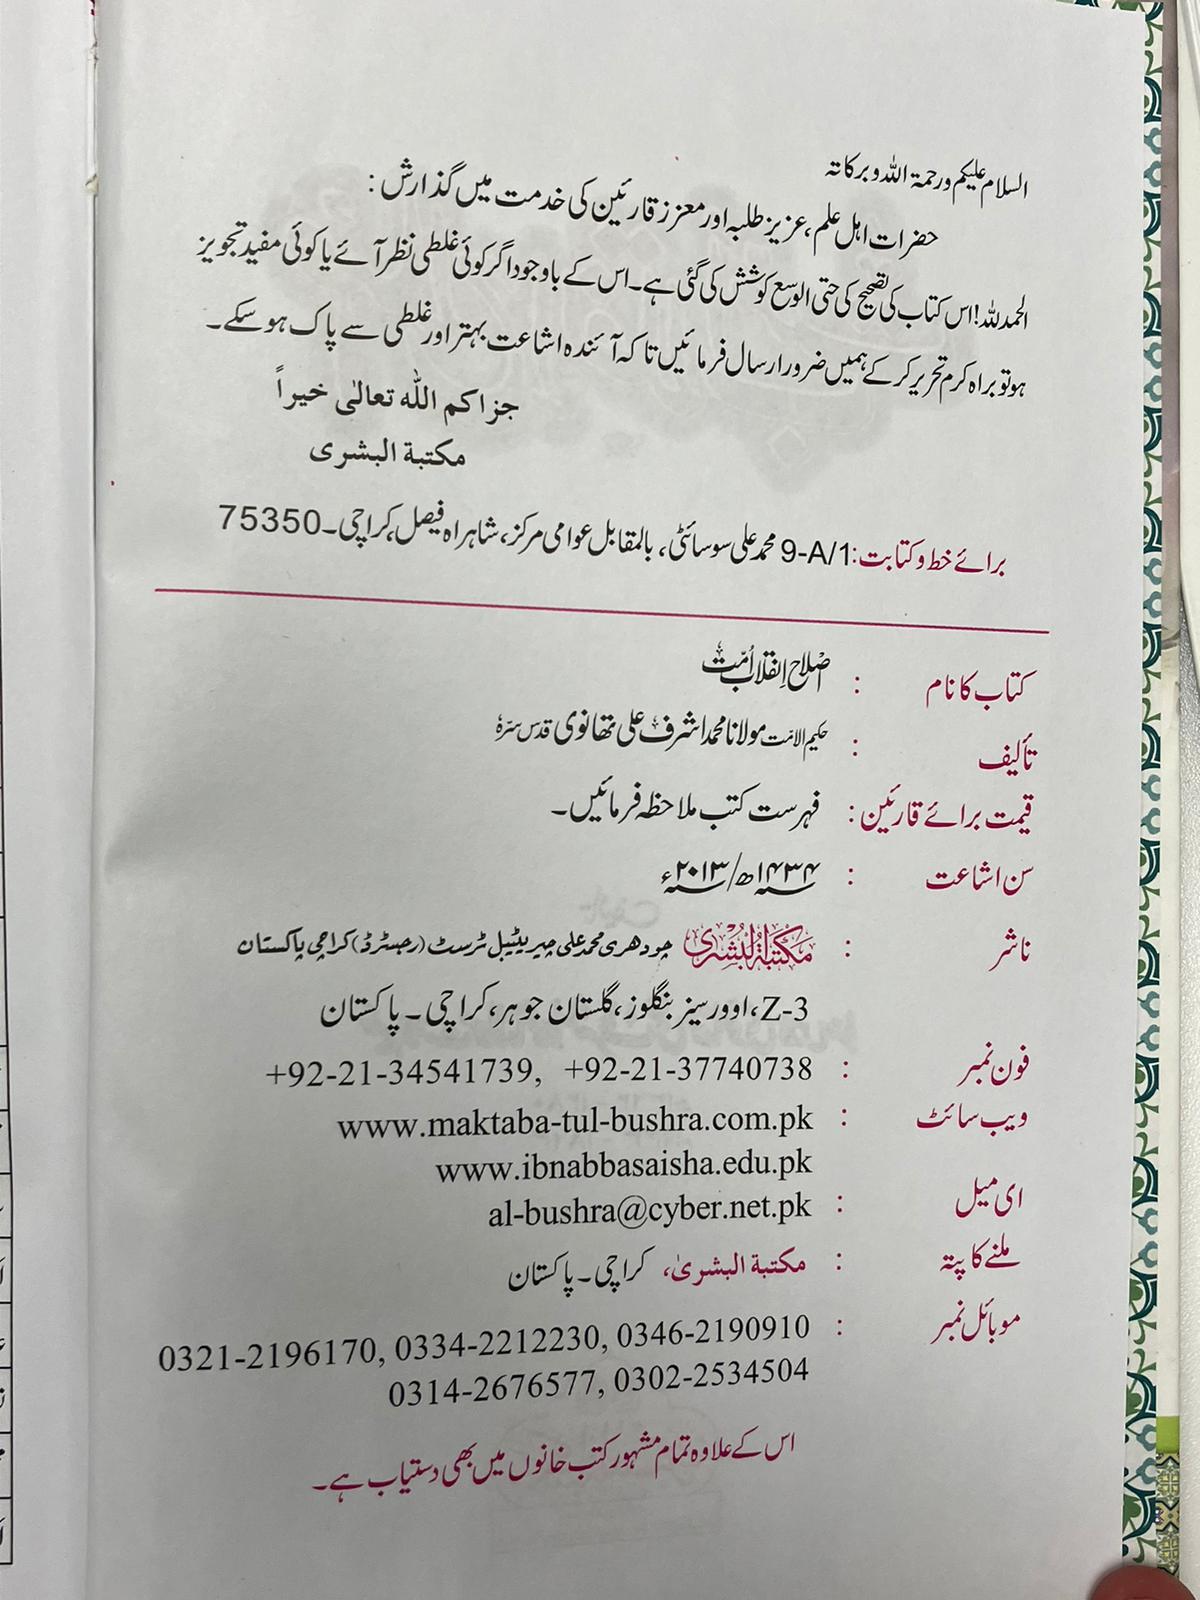 السلام علیکم ورحمۃ اللہ وبرکاتہ
حضرات اہل علم، عزیز طلبہ اور معزز قارئین کی خدمت میں گذارش:
الحمد للہ! اس کتاب کی تصحیح کی حتی الوسع کوشش کی گئی ہے۔ اس کے باوجود اگر کوئی غلطی نظر آئے یا کوئی مفید تجویز
ہو تو براہ کرم تحریر کر کے ہمیں ضرور ارسال فرمائیں تاکہ آئندہ اشاعت بہتر اور غلطی سے پاک ہو سکے۔
جزاکم اللہ تعالٰی خیراً
مكتبة البشرى
برائے خط و کتابت: 9-A/1 محمد علی سوسائٹی، بالمقابل عوامی مرکز، شاہراہ فیصل، کراچی۔ 75350
کتاب کا نام : اصلاحِ انقلابِ اُمّت
تألیف : حکیم الامّت مولانا محمد اشرف علی تھانوی قدس سرّہٗ
قیمت برائے قارئین : فہرست کتب ملاحظہ فرمائیں۔
سن اشاعت : ۱۴۳۴ھ/۲۰۱۳ء
ناشر : مكتبة البشرى چودھری محمد علی چیریٹیبل ٹرسٹ (رجسٹرڈ) کراچی پاکستان
Z-3، اوورسیز بنگلوز، گلستان جوہر، کراچی۔ پاکستان
فون نمبر : +92-21-34541739, +92-21-37740738
ویب سائٹ : www.maktaba-tul-bushra.com.pk
www.ibnabbasaisha.edu.pk
ای میل : al-bushra@cyber.net.pk
ملنے کا پتہ : مكتبة البشریٰ، کراچی۔ پاکستان
موبائل نمبر : 0321-2196170, 0334-2212230, 0346-2190910
0314-2676577, 0302-2534504
اس کے علاوہ تمام مشہور کتب خانوں میں بھی دستیاب ہے۔